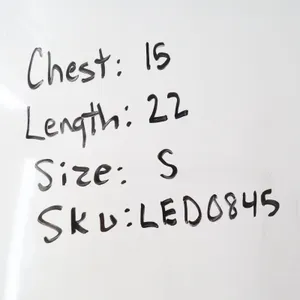 Chest: 15
Length: 22
Size: S
Sku: LED0845